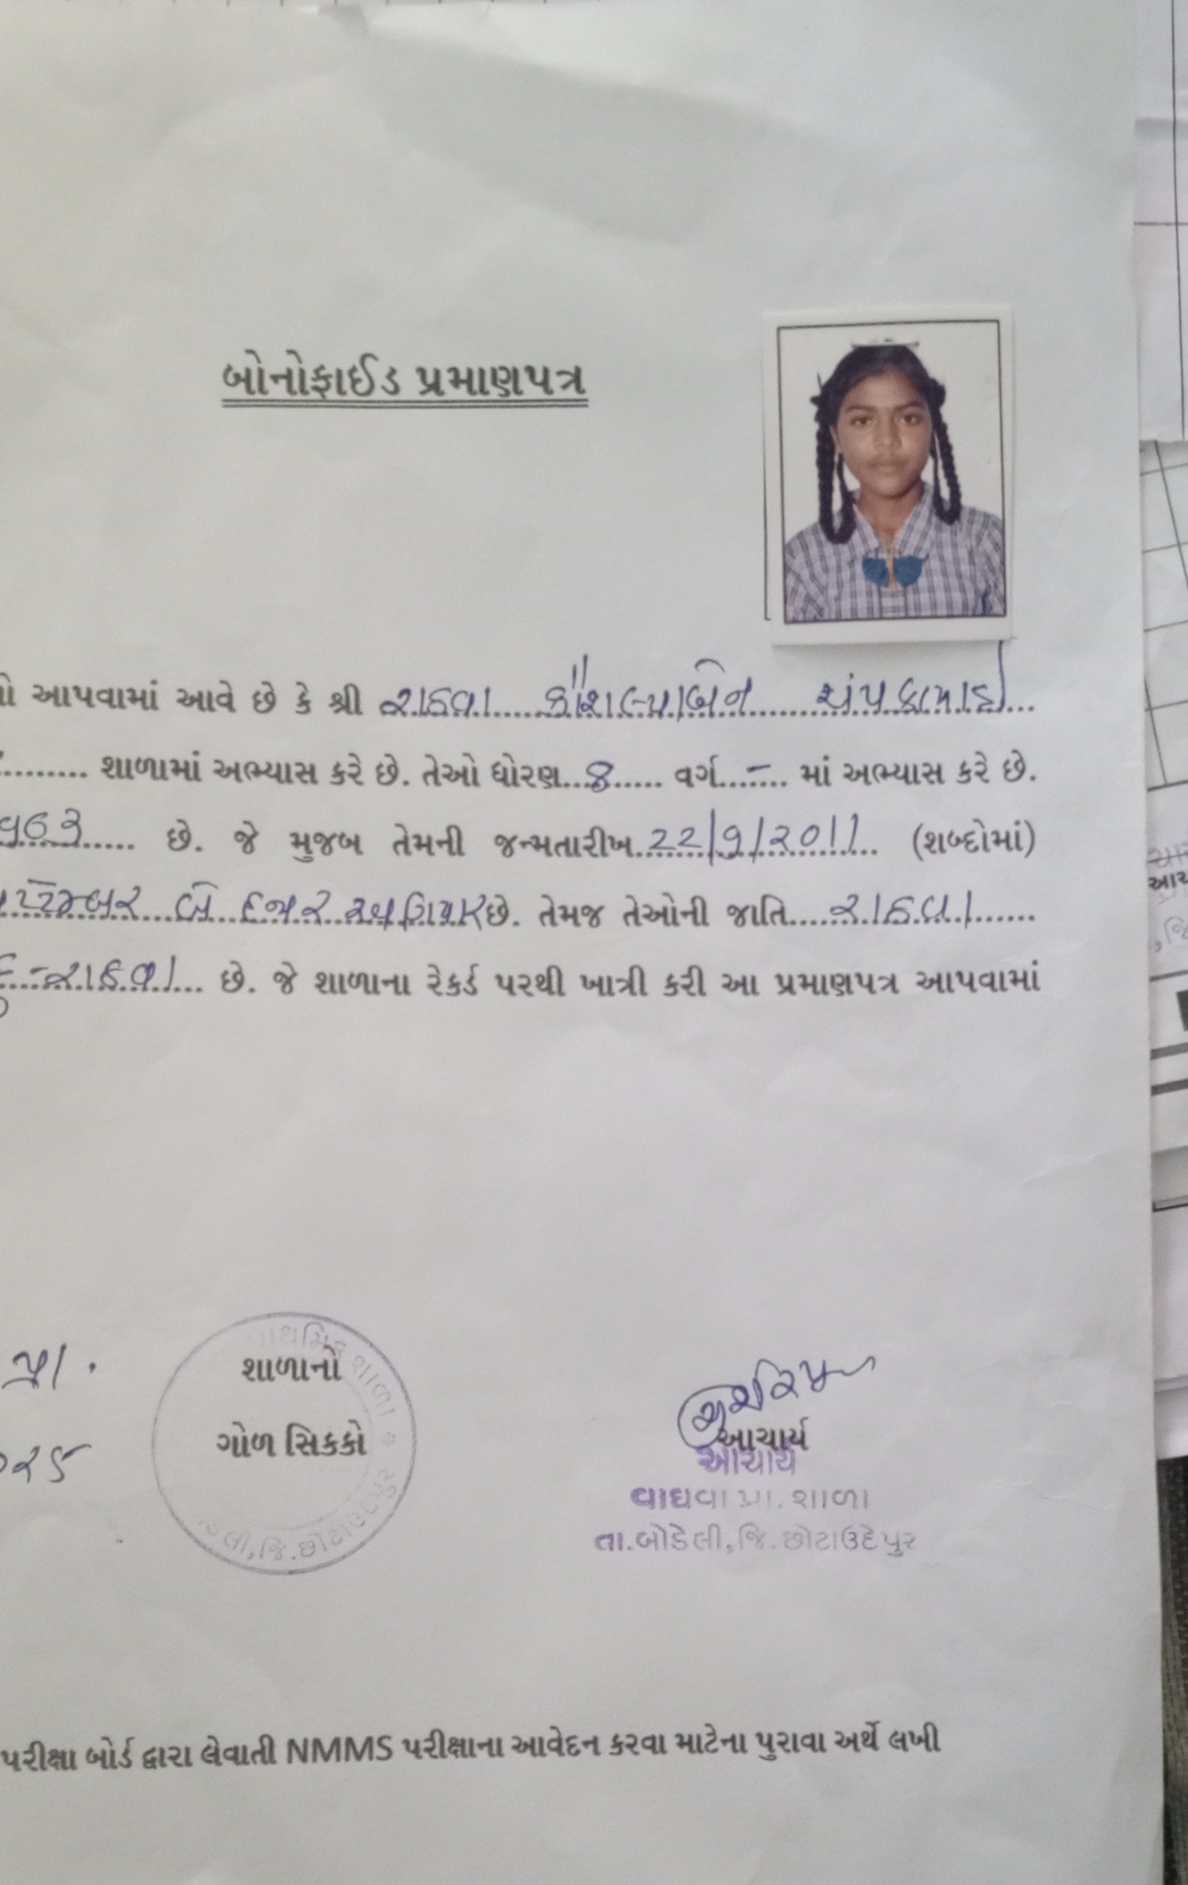 બોનોફાઈડ પ્રમાણપત્ર
આપવામાં આવે છે કે શ્રી રાઠવા કૌશલ્યાબેન ચંપકભાઈ
......... શાળામાં અભ્યાસ કરે છે. તેઓ ધોરણ...8..... વર્ગ...–... માં અભ્યાસ કરે છે.
છે. જે મુજબ તેમની જન્મતારીખ 22/9/2011 (શબ્દોમાં)
બે હજાર અગિયાર છે. તેમજ તેઓની જાતિ રાઠવા
રાઠવા છે. જે શાળાના રેકર્ડ પરથી ખાત્રી કરી આ પ્રમાણપત્ર આપવામાં
પ્રા.
શાળાનો
ગોળ સિકકો
આચાર્ય
આચાર્ય
વાઘવા પ્રા. શાળા
તા.બોડેલી,જિ.છોટાઉદેપુર
પરીક્ષા બોર્ડ દ્વારા લેવાતી NMMS પરીક્ષાના આવેદન કરવા માટેના પુરાવા અર્થે લખી